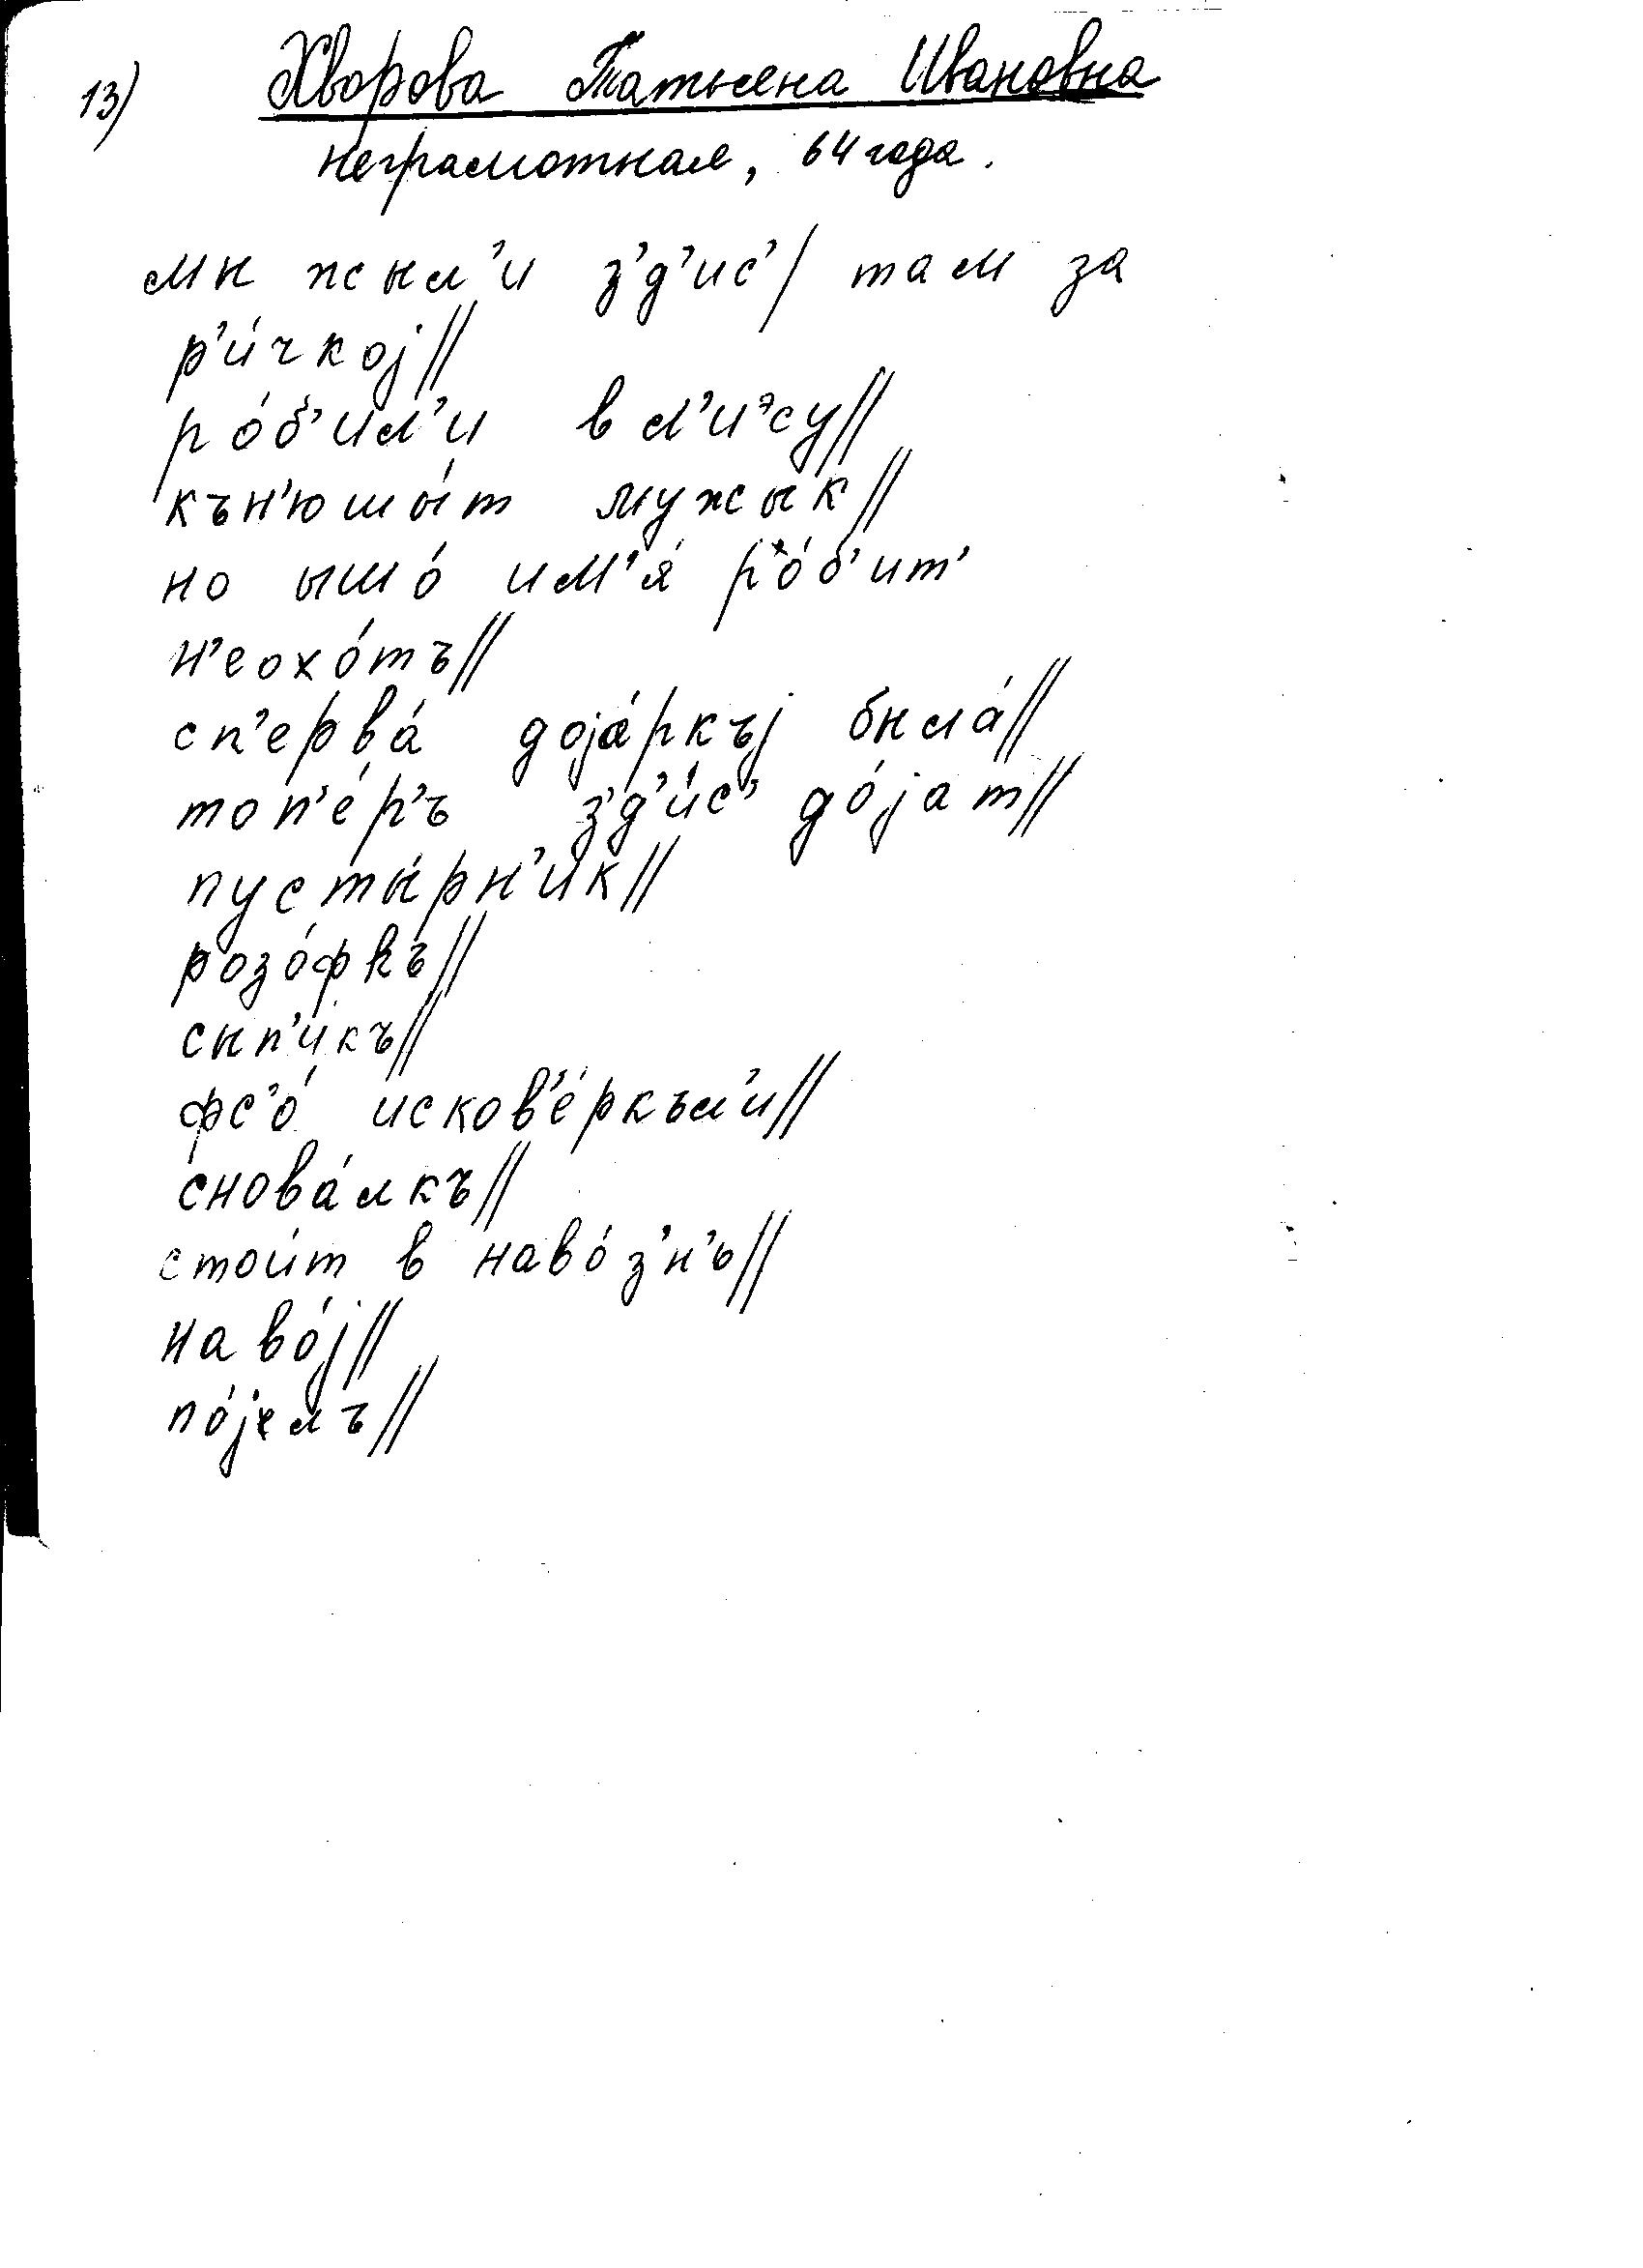 13) Хворова Татьяна Ивановна
неграмотная, 64 года.
мы жыл'и з'д'ис'/ там за
р'и́чкоj//
ро́б'ил'и в л'иэсу//
кън'юшы́т мужы́к//
но ышо́ им'я́ ро́б'ит'
н'еохо́тъ//
сп'ерва́ доjа́ркъj была́//
топ'е́р'ъ з'д'и́с' до́jат//
пусты́рн'ик//
розо́фкъ//
сып'и́къ//
фс'о́ исков'е́ркъл'и//
снова́лкъ//
стои́т в наво́з'н'ь//
наво́j//